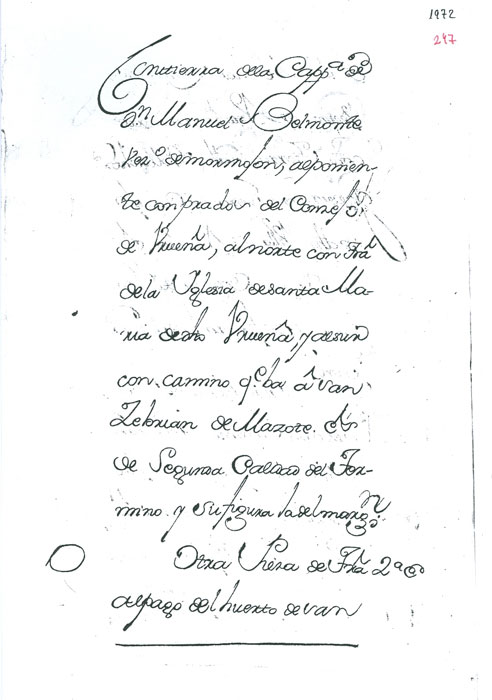 1972
247
Contierra dela Capp.ª de
d.n Manuel Belmonte
Vez.º demormojon, alponien-
te con prados del Conzejo
de Vrueña, alnorte con trâ
dela Yglesia desanta Ma-
ria desta Vrueñâ, y alsur
con camino q.e ba â san
Zebrian de Mazote. Es
de Segunda Calidad del Ter-
mino y su figura la del marg.n
Otra Pieza de trâ 2.ª
alpago del huerto de san